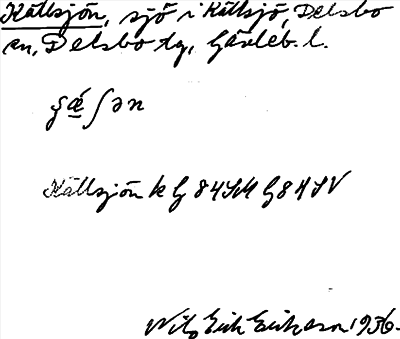 Källsjön, sjö i Källsjö, Delsbo
sn, Delsbo tg, Gävleb. l.
Källsjön k G 84 SM G 84 SV
Nils Erik Eriksson 1936.